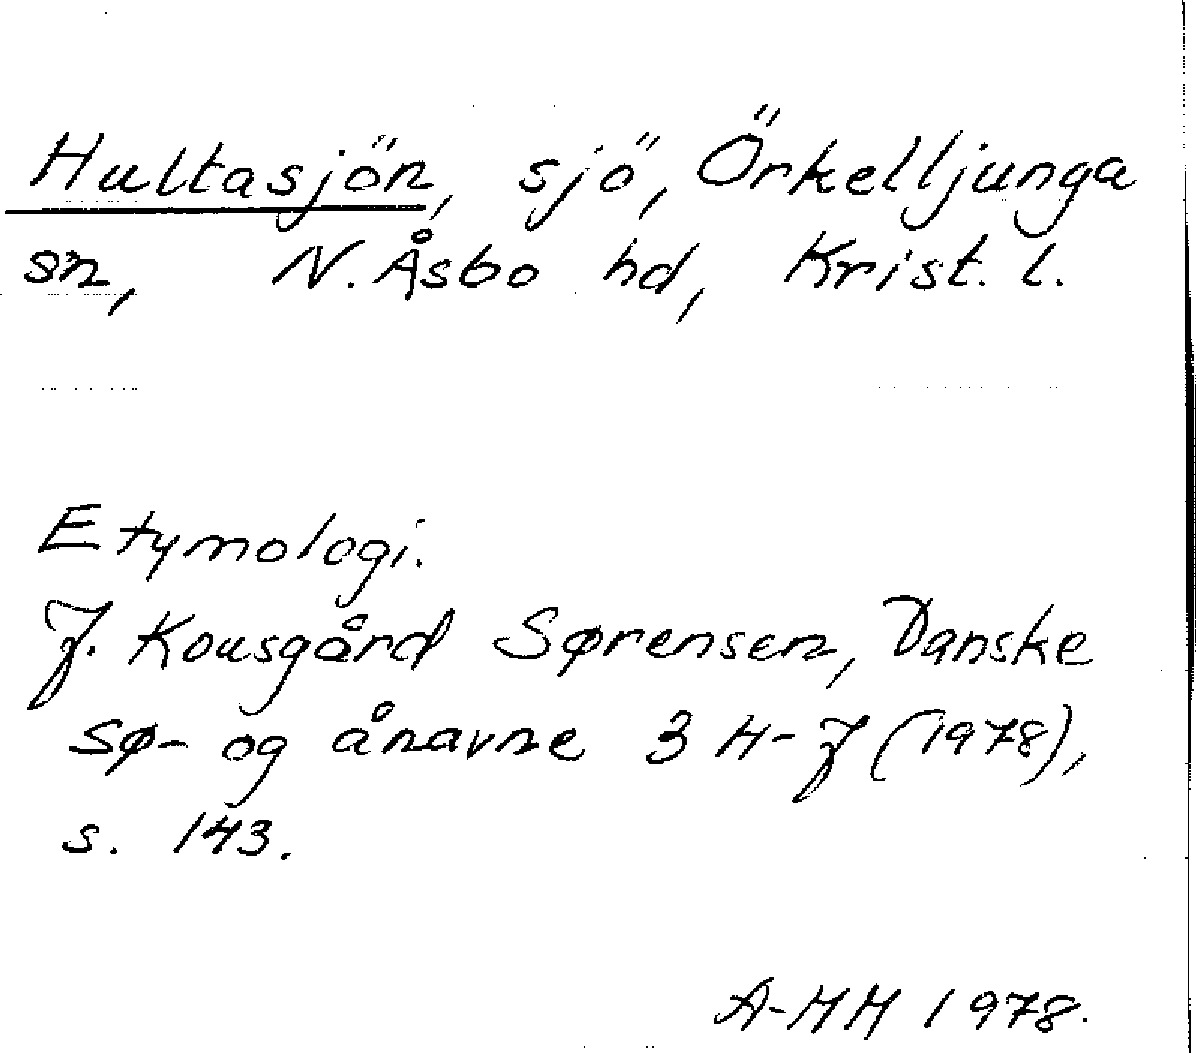 Hultasjön, sjö, Örkelljunga
sn, N. Åsbo hd, Krist. l.
Etymologi.
J. Kousgård Sørensen, Danske
sø- og ånavne 3 H-J (1978),
s. 143.
A-HH 1978.